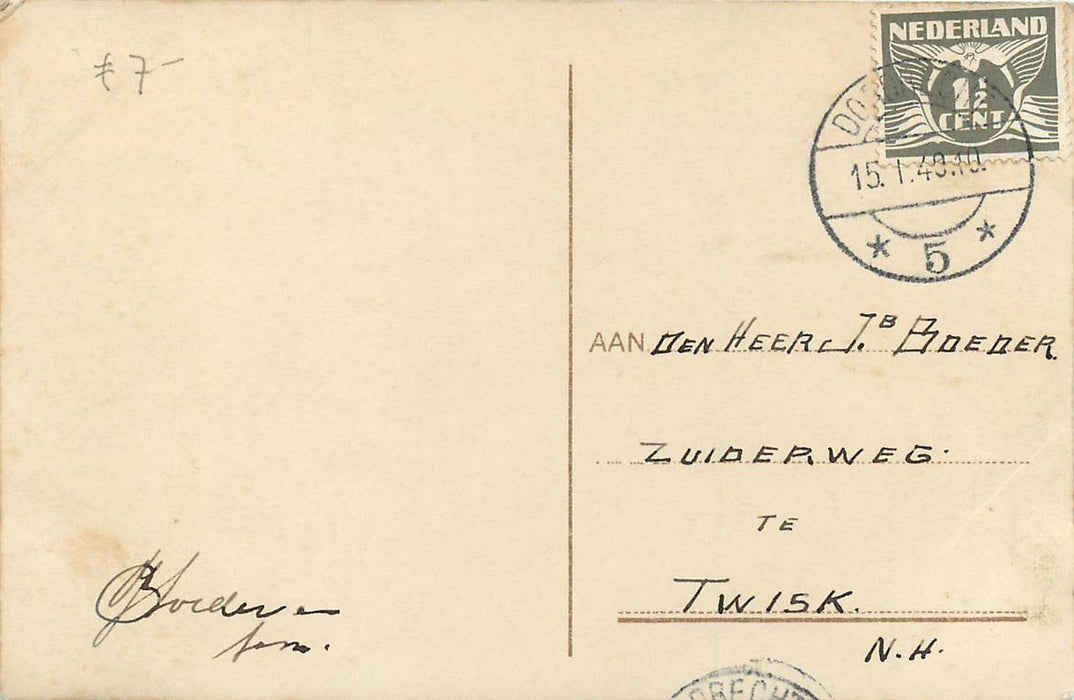 € 7-
NEDERLAND
1½
CENT
15.1.40.10.
* 5 *
AAN DEN HEER J.B BOEDER.
ZUIDERWEG.
TE
TWISK.
N.H.
Boeder en
fam.
DRECHT